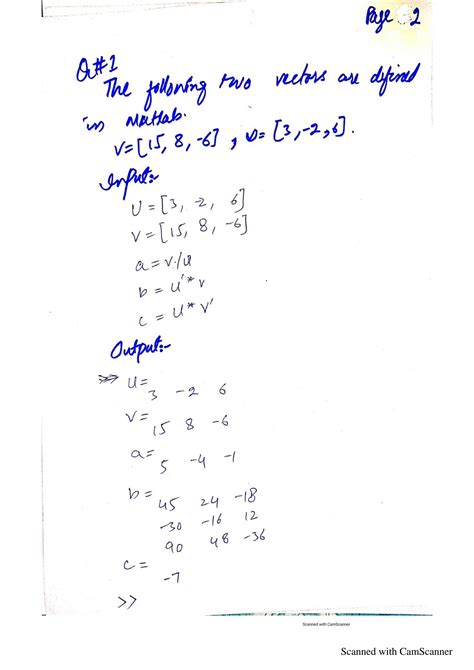 Page #2
Q#1
The following two vectors are defined
in Matlab.
V=[15, 8, -6] , U= [3, -2, 6].
Input:-
U = [3, -2, 6]
V = [15, 8, -6]
a = V./U
b = U'*V
c = U*V'
Output:-
>>> U=
3 -2 6
V=
15 8 -6
a=
5 -4 -1
b=
45 24 -18
-30 -16 12
90 48 -36
c=
-7
>>
Scanned with CamScanner
Scanned with CamScanner